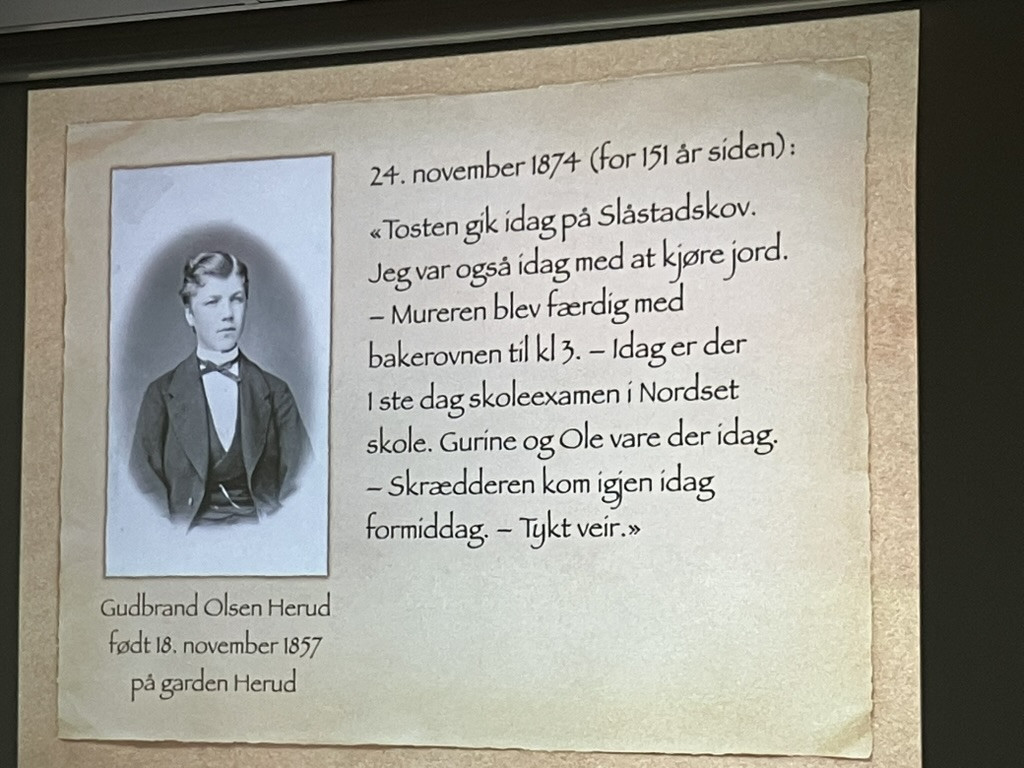 24. november 1874 (for 151 år siden):
«Tosten gik idag på Slåstadskov.
Jeg var også idag med at kjøre jord.
– Mureren blev færdig med
bakerovnen til kl 3. – Idag er der
1 ste dag skoleexamen i Nordset
skole. Gurine og Ole vare der idag.
– Skrædderen kom igjen idag
formiddag. – Tykt veir.»
Gudbrand Olsen Herud
født 18. november 1857
på garden Herud